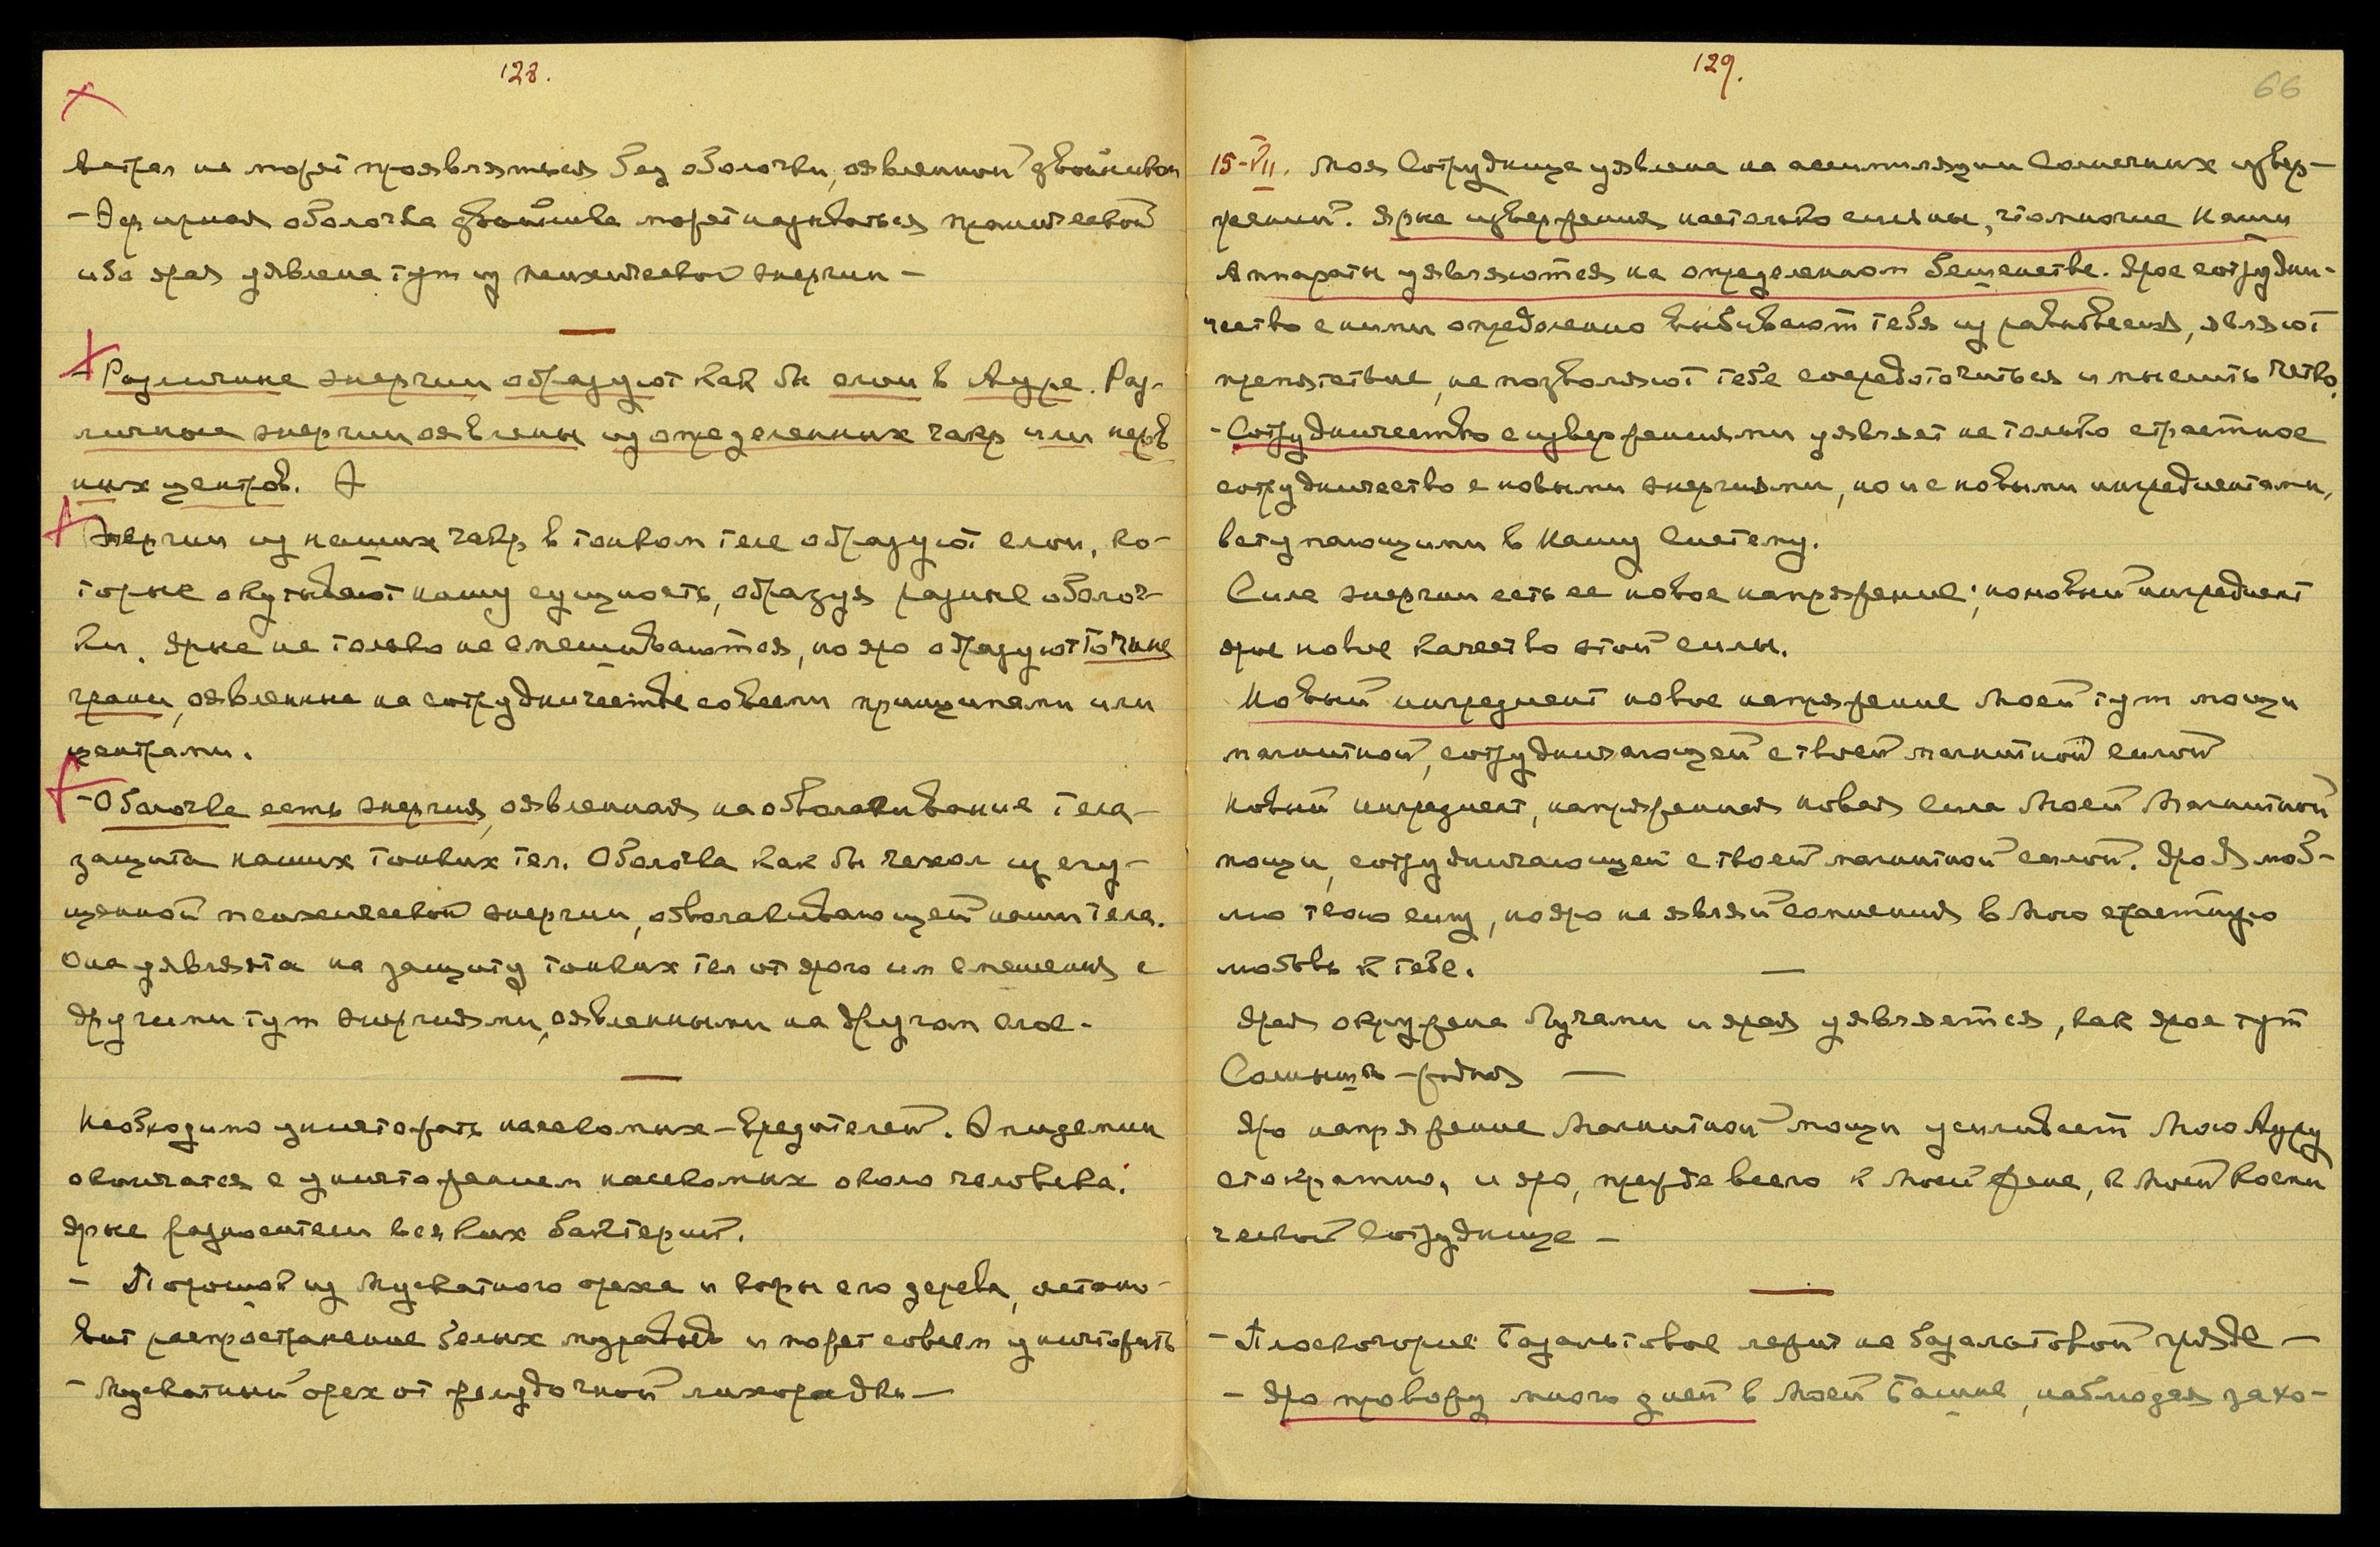 128.
Астрал не может проявляться без оболочки, оявленной двойником
- Эфирная оболочка двойника может называться психической
ибо ярая уявлена тут из психической энергии -
- Различные энергии образуют как бы слои в Ауре. Раз-
личные энергии оявлены из определенных чакр или нерв
ных центров. А
Энергии из наших чакр в тонком теле образуют слои, ко-
торые окутывают нашу сущность, образуя разные оболоч-
ки. Ярые не только не смешиваются, но яро образуют точные
грани, оявленные на сотрудничестве со всеми принципами или
центрами.
- Оболочка есть энергия, оявленная на обволакивание тела -
защита наших тонких тел. Оболочка как бы чехол из сгу-
щенной психической энергии, обволакивающей наши тела.
Она уявлянта на защиту тонких тел от ярого им смешения с
другими тут энергиями, оявленными на другом слое -
Необходимо уничтожать насекомых-вредителей. Эпидемии
окончатся с уничтожением насекомых около человека.
Ярые разносители всяких бактерий.
- Порошок из Мускатного ореха и коры его дерева, остано-
вит распространение белых муравьев и может совсем уничтожить
- Мускатный орех от желудочной лихорадки -
129.
66
15-VII. Моя Сотрудница уявлена на ассимиляции Солнечных извер-
жений. Ярые извержения настолько сильны, что многие Наши
Аппараты уявляются на определенном бешенстве. Ярое сотрудни-
чество с ними определенно выбивают тебя из равновесия, являют
препятствие, не позволяют тебе сосредоточиться и мыслить четко.
- Сотрудничество с извержениями уявляет не только страстное
сотрудничество с новыми энергиями, но и с новыми ингредиентами,
вступающими в Нашу Систему.
Сила энергии есть ее новое напряжение; но новый ингредиент
ярое новое качество этой силы.
Новый ингредиент новое напряжение Моей тут мощи
магнитной, сотрудничающей с твоей магнитной силой
Новый ингредиент, напряженная новая Сила Моей Магнитной
мощи, сотрудничающей с твоей магнитной силой. Яро Я люб-
лю твою силу, но яро не являй сомнения в Мою страстную
любовь к тебе. —
Ярая окружена Лучами и ярая уявляется, как ярое тут
Солнышко - родная —
Яро напряжение Магнитной мощи усиливает Мою Ауру
стократно, и яро, прежде всего к Моей Жене, к Моей Косми
ческой Сотруднице -
- Плоскогорие Базальтовое лежит на базальтовой гряде -
- Яро провожу много дней в Моей Башне, наблюдая захо-